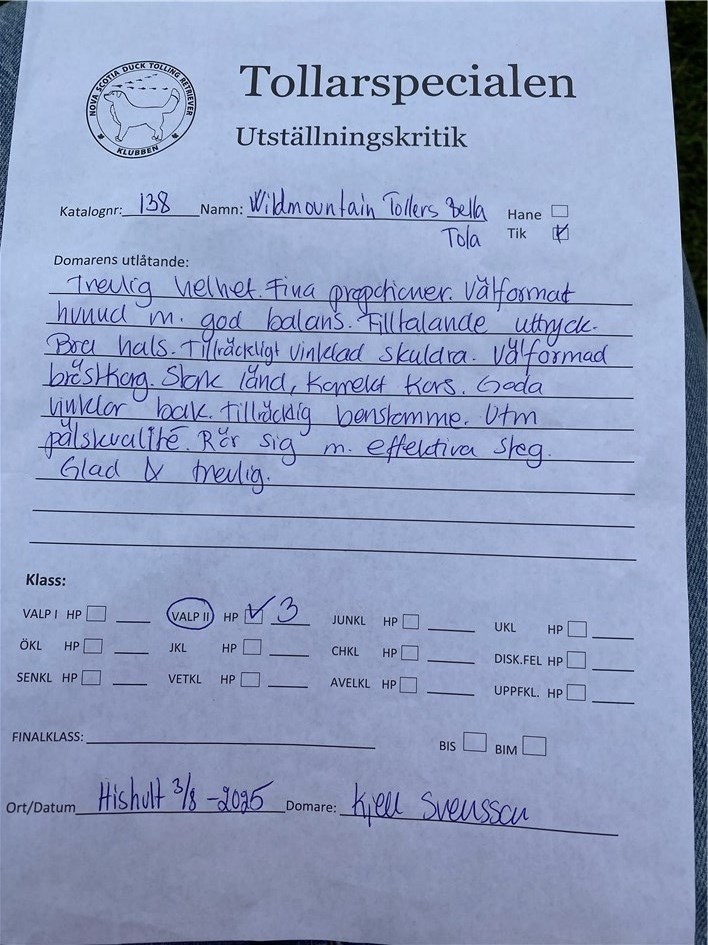 NOVA SCOTIA DUCK TOLLING RETRIEVER
KLUBBEN
Tollarspecialen
Utställningskritik
Katalognr: 138 Namn: Wildmountain Tollers Bella Hane
Tola Tik
Domarens utlåtande:
Trevlig helhet. Fina proportioner. Välformat
huvud m. god balans. Tilltalande uttryck.
Bra hals. Tillräckligt vinklad skuldra. Välformad
bröstkorg. Stark länd, korrekt kors. Goda
vinklar bak. Tillräcklig benstomme. Utm
pälskvalité. Rör sig m. effektiva steg.
Glad & trevlig.
Klass:
VALP I HP VALP II HP 3 JUNKL HP UKL HP
ÖKL HP JKL HP CHKL HP DISK.FEL HP
SENKL HP VETKL HP AVELKL HP UPPFKL. HP
FINALKLASS: BIS BIM
Ort/Datum Hishult 3/8 -2025 Domare: Kjell Svensson